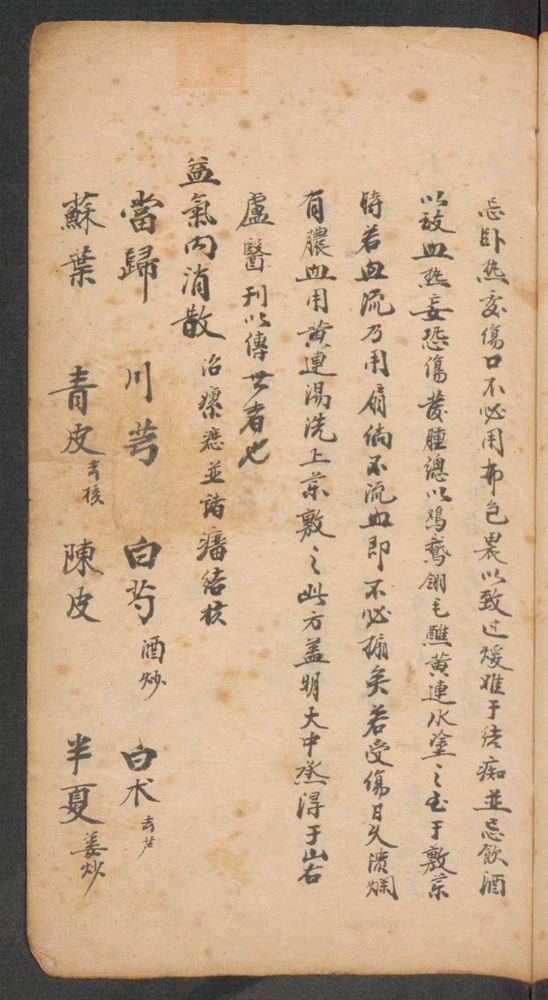 忌卧热處傷口不必用布包裹以致过煖难于结痂並忌飲酒
以致血热妄恐傷發腫總以鸡鵞翎毛蘸黄連水塗之至于敷药
時若血流乃用扇倘不流血即不必搧矣若受傷日久潰爛
有膿血用黄連湯洗上药敷之此方盖明大中丞得于山右
盧醫刊以傳世者也
益氣内消散 治瘰癧並諸瘤结核
當歸 川芎 白芍酒炒 白朮去芦
蘇葉 青皮去核 陳皮 半夏姜炒